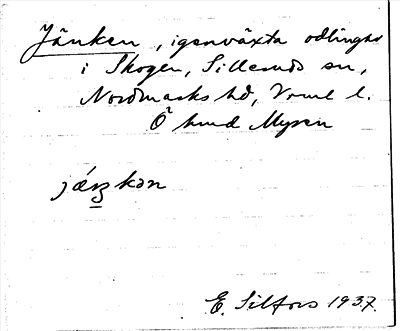 Jänken, igenväxta odlingar
i Skogen, Silleruds sn,
Nordmarks hd, Vrml l.
Ö hmd Myren
E. Silfors 1937.